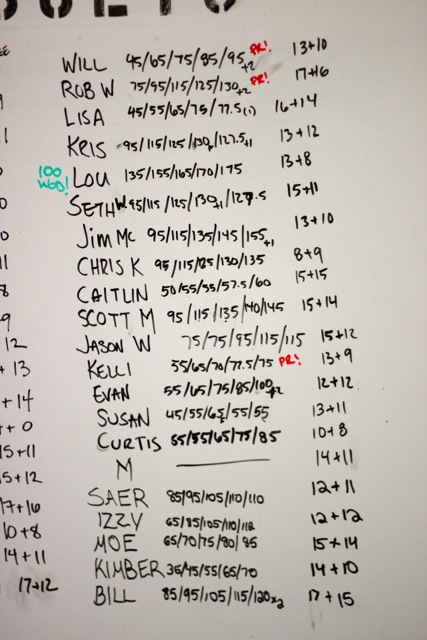 WILL 45/65/75/85/95+2 PR! 13+10
ROB W 75/95/115/125/130+2 PR! 17+16
LISA 45/55/65/75/77.5(1) 16+14
KRIS 95/115/125/130/127.5+1 13+12
100 WOD! LOU 135/155/165/170/175 13+8
SETH W 95/115/125/130+1/127.5 15+11
Jim Mc 95/115/135/145/155+1 13+10
CHRIS K 95/115/125/130/135 8+9
CAITLIN 50/55/55/57.5/60 15+15
SCOTT M 95/115/135/140/145 15+14
JASON W 75/75/95/115/115 15+12
KELLI 55/65/70/72.5/75 PR! 13+9
EVAN 55/65/75/85/100+2 12+12
SUSAN 45/55/65/55/55 13+11
CURTIS 55/65/75/85 10+8
M 14+11
SAER 85/95/105/110/110 12+11
IZZY 65/85/105/110/112 12+12
MOE 65/70/75/80/85 15+14
KIMBER 35/45/55/65/70 14+10
BILL 85/95/105/115/120x2 17+15
12
+13
+14
15+11
15+12
17+16
10+8
14+11
17+12